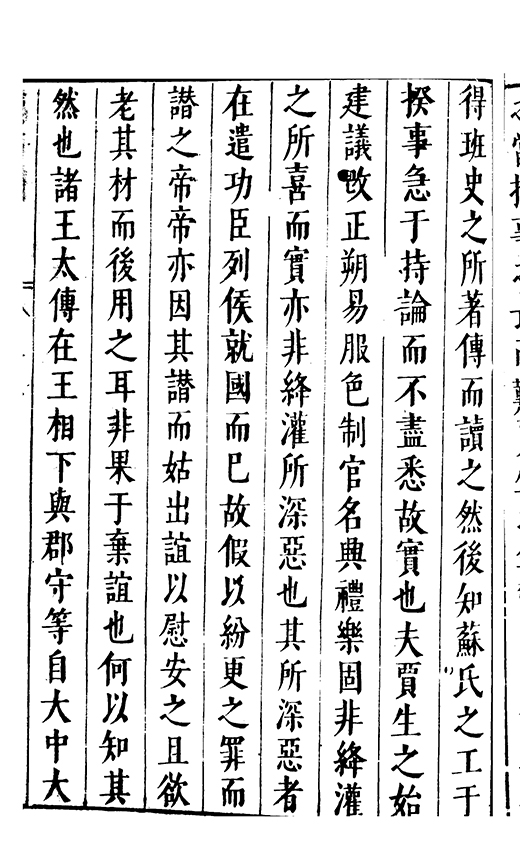 得班史之所著傳而讀之然後知蘇氏之工于
揆事急于持論而不盡悉故實也夫賈生之始
建議改正朔易服色制官名典禮樂固非絳灌
之所喜而實亦非絳灌所深惡也其所深惡者
在遣功臣列侯就國而已故假以紛更之罪而
譖之帝帝亦因其譖而姑出誼以慰安之且欲
老其材而後用之耳非果于棄誼也何以知其
然也諸王太傅在王相下與郡守等自大中大